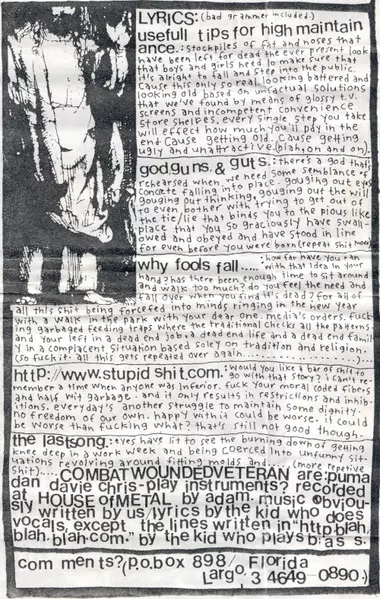 LYRICS: (bad grammer included.)
usefull tips for high maintain
ance.: stockpiles of fat and noses that
have been left for dead. the ever present look
that boys and girls need to make sure that
it's alright to fall and step into the public.
cause this only so real. looking battered and
looking old based on unfactual solutions
that we've found by means of glossy t.v.
screens and incompetent convenience
store shelves. every single step you take
will effect how much you'll pay in the
end. cause getting old. cause getting
ugly and unattractive. (blah, on and on).
god, guns, & guts.: there's a god that's
rehearsed when we need some semblance of
concrete falling into place. gouging out eyes
gouging out thinking, gouging out the will
to even bother with trying to get out of
the tie/lie that binds you to the pious like
place that you so graciously have swall-
owed and obeyed and have stood in line
for even before you were born (repeat shit now)
why fools fall.....: how far have you ran
with that idea in your
hand? has there been enough time to sit around
and walk too much? do you feel the need and
fall over when you find it's dead? for all of
all this shit being forced into minds ringing in the new year
with a walk in the park with your dear one. media's orders. fuck-
ing garbaged feeding traps where the traditional checks all the patterns
and your left in a dead end job, a dead end life and a dead end famil
y in a complacent situation based soley on tradition and religion.
(so fuck it. all this gets repeated over again.......................)
http://www.stupid shit.com.: would you like a bar of shit to
go with that story? i can't re-
member a time when anyone was inferior. fuck your moral coded fibers
and half wit garbage. and it only results in restrictions and inhib-
itions. everyday's another struggle to maintain some dignity.
no freedom of our own. happy with i could be worse. it could
be worse than fucking what? that's still not good though.
the lastsong.: eyes have lit to see the burning down of getting
knee deep in a work week and being coerced into unfunny sit-
uations revolving around fitting molds and..... (more repetive
shit)..... COMBATWOUNDEDVETERAN are: puma
dan davie chris-play instruments? recorded
at HOUSE OF METAL by adam. music obviou-
sly written by us/lyrics by the kid who does
vocals, except the lines written in "http.blah,
blah. blah.com." by the kid who plays b as s.
com ments? (p.o.box 898/ Florida
Largo, 3 4649 - 0890.)